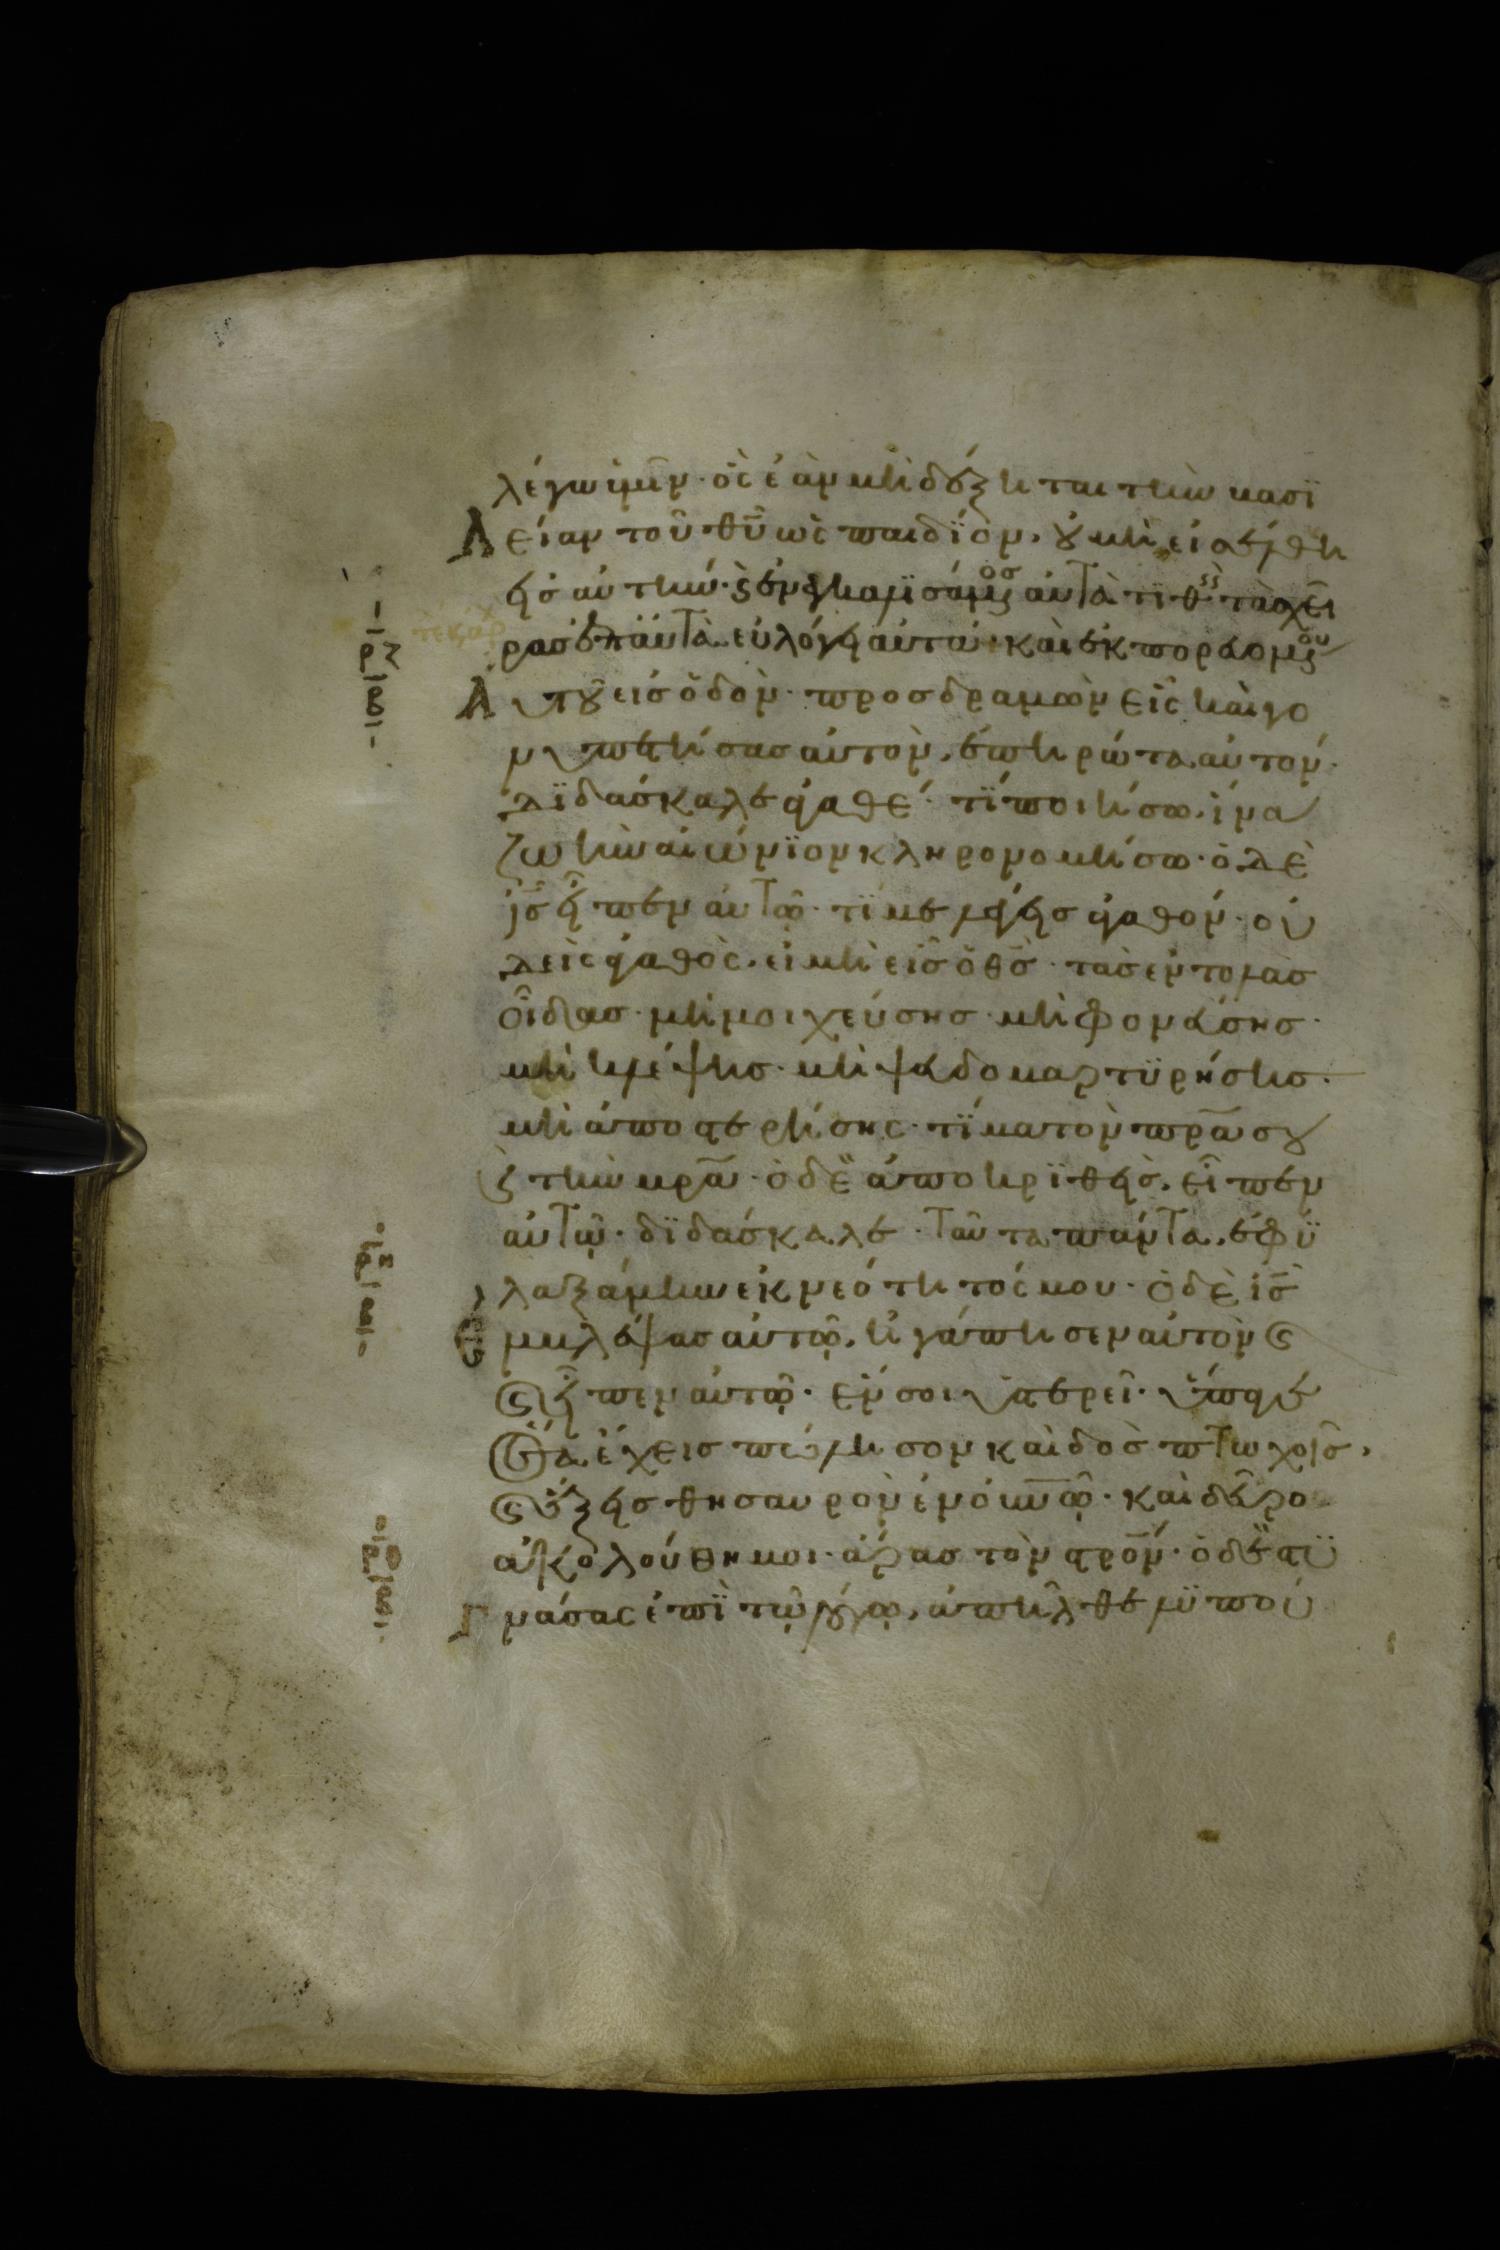 λέγω ὑμῖν· ὃς ἐὰν μὴ δέξηται τὴν βασϊ
λείαν τοῦ θῦ ὡς παιδίον, οὐ μὴ εἰσέλθη
εἰς αὐτήν· ϛ ἐναγκαλϊσάμενος αὐτὰ τϊθεὶς τὰς χεῖ
ρας ἐπ' αὐτὰ εὐλόγει αὐτά· καὶ ἐκπορευομένου
αὐτοῦ εἰς ὁδὸν· προσδραμὼν εἷς καὶ γο
νυπετήσας αὐτὸν, ἐπηρώτα αὐτόν·
δϊδάσκαλε ἀγαθέ· τϊ ποιήσω, ἵνα
ζωὴν αἰώνϊον κληρονομήσω· ὁ δὲ
ις εἶπεν αὐτῶ· τϊ με λέγεις ἀγαθόν· οὐ
δεὶς ἀγαθὸς, εἰ μὴ εἷς ὁ θς· τὰς ἐντολὰς
οἶδας· μὴ μοιχεύσης· μὴ φονεύσης·
μὴ κλέψης· μὴ ψευδομαρτϋρήσης·
μὴ ἀποστερήσης· τϊμα τὸν πρα σου
ϛ τὴν μρα· ὁ δὲ ἀποκρϊθεὶς, εἶπεν
αὐτῶ· δϊδάσκαλε· ταῦτα πάντα, ἐφϋ
λαξάμην ἐκ νεότητός μου· ὁ δὲ ις
ἐμβλέψας αὐτῶ, ἠγάπησεν αὐτὸν ϛ
εἶπεν αὐτῶ· ἕν σοι ὑστερεῖ· ὕπαγε
ὅσα ἔχεις πώλησον καὶ δὸς πτωχοῖς,
ϛ ἕξεις θησαυρὸν ἐν οὐνῶ· καὶ δεῦρο
ἀκολούθη μοι· ἄρας τὸν στρον· ὁ δὲ στϋ
γνάσας ἐπϊ τῶ λόγω, ἀπῆλθε λϋπού